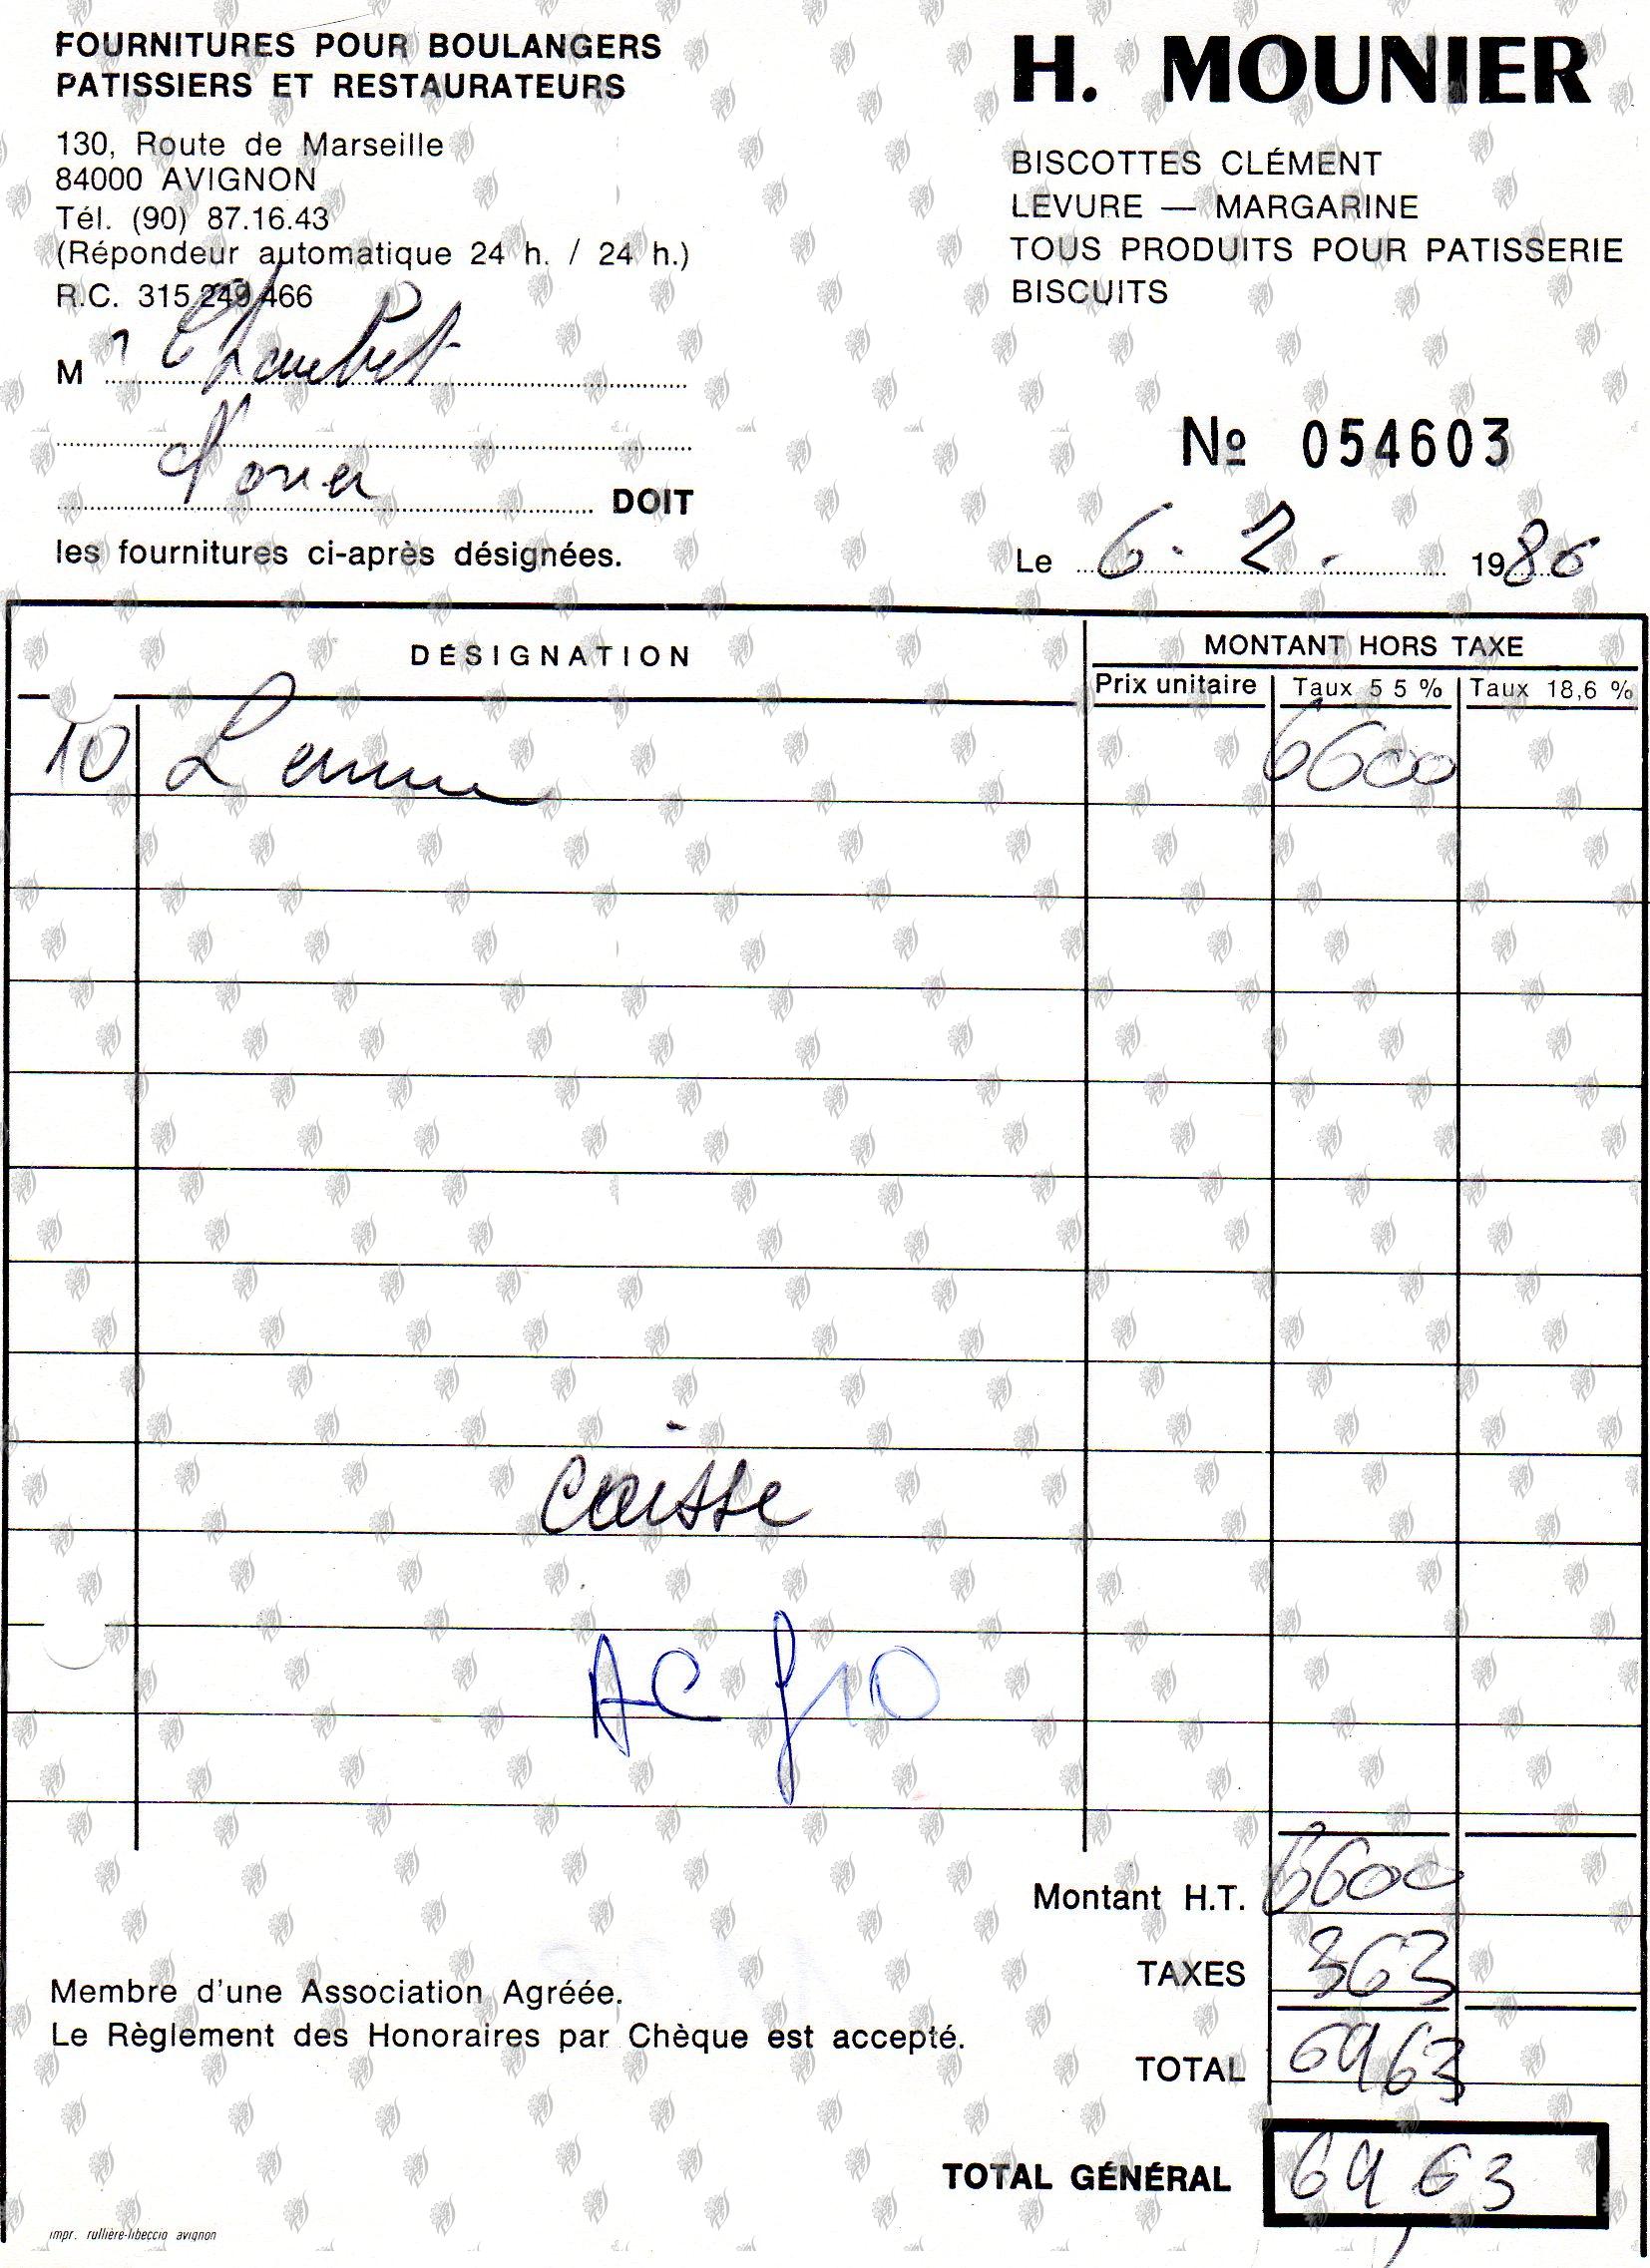 FOURNITURES POUR BOULANGERS
PATISSIERS ET RESTAURATEURS
130, Route de Marseille
84000 AVIGNON
Tél. (90) 87.16.43
(Répondeur automatique 24 h. / 24 h.)
R.C. 315 249 466
H. MOUNIER
BISCOTTES CLÉMENT
LEVURE — MARGARINE
TOUS PRODUITS POUR PATISSERIE
BISCUITS
M
DOIT
les fournitures ci-après désignées.
Nº 054603
Le 6. 2. 1986
DÉSIGNATION
MONTANT HORS TAXE
Prix unitaire Taux 5 5 % Taux 18,6 %
10 6600
caisse
Montant H.T. 6600
TAXES 363
TOTAL 6963
TOTAL GÉNÉRAL 6963
Membre d'une Association Agréée.
Le Règlement des Honoraires par Chèque est accepté.
impr. rullière-libeccio avignon